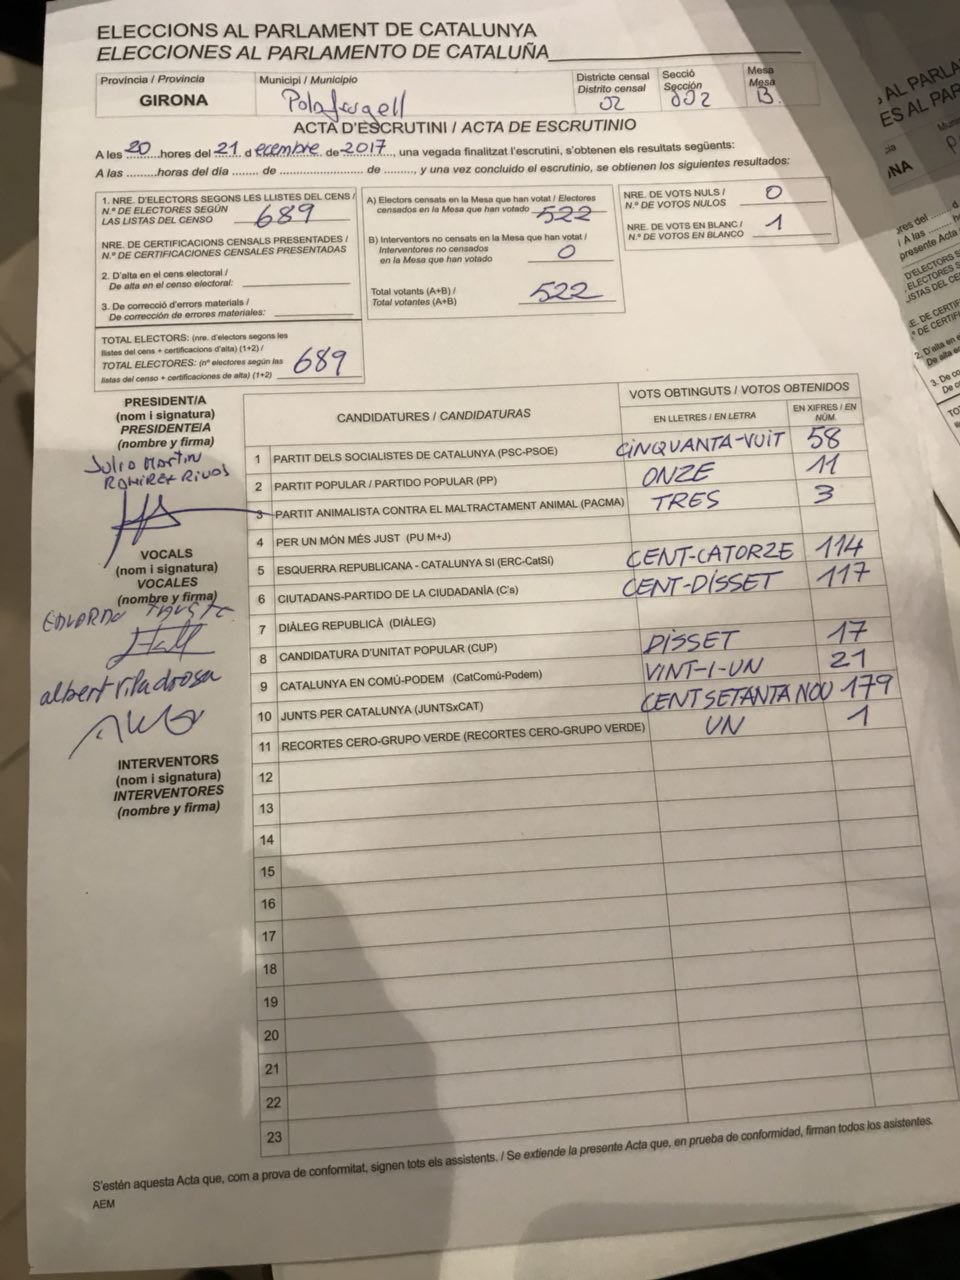 ELECCIONS AL PARLAMENT DE CATALUNYA
ELECCIONES AL PARLAMENTO DE CATALUÑA
Província / Provincia
GIRONA
Municipi / Municipio
Palafrugell
Districte censal
Distrito censal
02
Secció
Sección
002
Mesa
Mesa
B.
ACTA D'ESCRUTINI / ACTA DE ESCRUTINIO
A les 20 hores del 21 d ecembre de 2017, una vegada finalitzat l'escrutini, s'obtenen els resultats següents:
A las .........horas del día ....... de .................... de ........, y una vez concluido el escrutinio, se obtienen los siguientes resultados:
1. NRE. D'ELECTORS SEGONS LES LLISTES DEL CENS /
N.º DE ELECTORES SEGÚN
LAS LISTAS DEL CENSO 689
NRE. DE CERTIFICACIONS CENSALS PRESENTADES /
N.º DE CERTIFICACIONES CENSALES PRESENTADAS
2. D'alta en el cens electoral /
De alta en el censo electoral:
3. De correcció d'errors materials /
De corrección de errores materiales:
TOTAL ELECTORS: (nre. d'electors segons les
llistes del cens + certificacions d'alta) (1+2) /
TOTAL ELECTORES: (nº electores según las
listas del censo + certificaciones de alta) (1+2) 689
A) Electors censats en la Mesa que han votat / Electores
censados en la Mesa que han votado 522
B) Interventors no censats en la Mesa que han votat /
Interventores no censados
en la Mesa que han votado 0
Total votants (A+B) /
Total votantes (A+B) 522
NRE. DE VOTS NULS /
N.º DE VOTOS NULOS 0
NRE. DE VOTS EN BLANC /
N.º DE VOTOS EN BLANCO 1
PRESIDENT/A
(nom i signatura)
PRESIDENTE/A
(nombre y firma)
Julio Martin
Ramirez Rivos
VOCALS
(nom i signatura)
VOCALES
(nombre y firma)
albert viladrosa
INTERVENTORS
(nom i signatura)
INTERVENTORES
(nombre y firma)
CANDIDATURES / CANDIDATURAS
VOTS OBTINGUTS / VOTOS OBTENIDOS
EN LLETRES / EN LETRA
EN XIFRES / EN
NÚM.
1 PARTIT DELS SOCIALISTES DE CATALUNYA (PSC-PSOE) CINQUANTA-VUIT 58
2 PARTIT POPULAR / PARTIDO POPULAR (PP) ONZE 11
3 PARTIT ANIMALISTA CONTRA EL MALTRACTAMENT ANIMAL (PACMA) TRES 3
4 PER UN MÓN MÉS JUST (PU M+J)
5 ESQUERRA REPUBLICANA - CATALUNYA SI (ERC-CatSí) CENT-CATORZE 114
6 CIUTADANS-PARTIDO DE LA CIUDADANÍA (C's) CENT-DISSET 117
7 DIÀLEG REPUBLICÀ (DIÀLEG)
8 CANDIDATURA D'UNITAT POPULAR (CUP) DISSET 17
9 CATALUNYA EN COMÚ-PODEM (CatComú-Podem) VINT-I-UN 21
10 JUNTS PER CATALUNYA (JUNTSxCAT) CENT SETANTA NOU 179
11 RECORTES CERO-GRUPO VERDE (RECORTES CERO-GRUPO VERDE) UN 1
12
13
14
15
16
17
18
19
20
21
22
23
S'estén aquesta Acta que, com a prova de conformitat, signen tots els assistents. / Se extiende la presente Acta que, en prueba de conformidad, firman todos los asistentes.
AEM